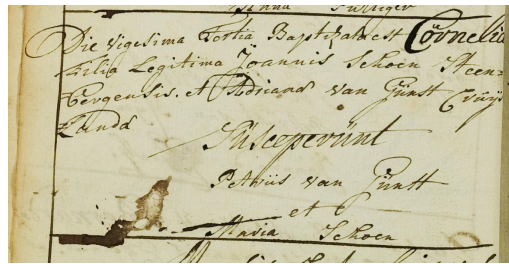 Die vigesima tertia Baptizata est Cornelia
filia Legitima Joannis Schoen Steen-
bergensis. et Adriana van Günst Crüÿs
Landa
Süsceperünt
Petrüs van Günst
et
Maria Schoen